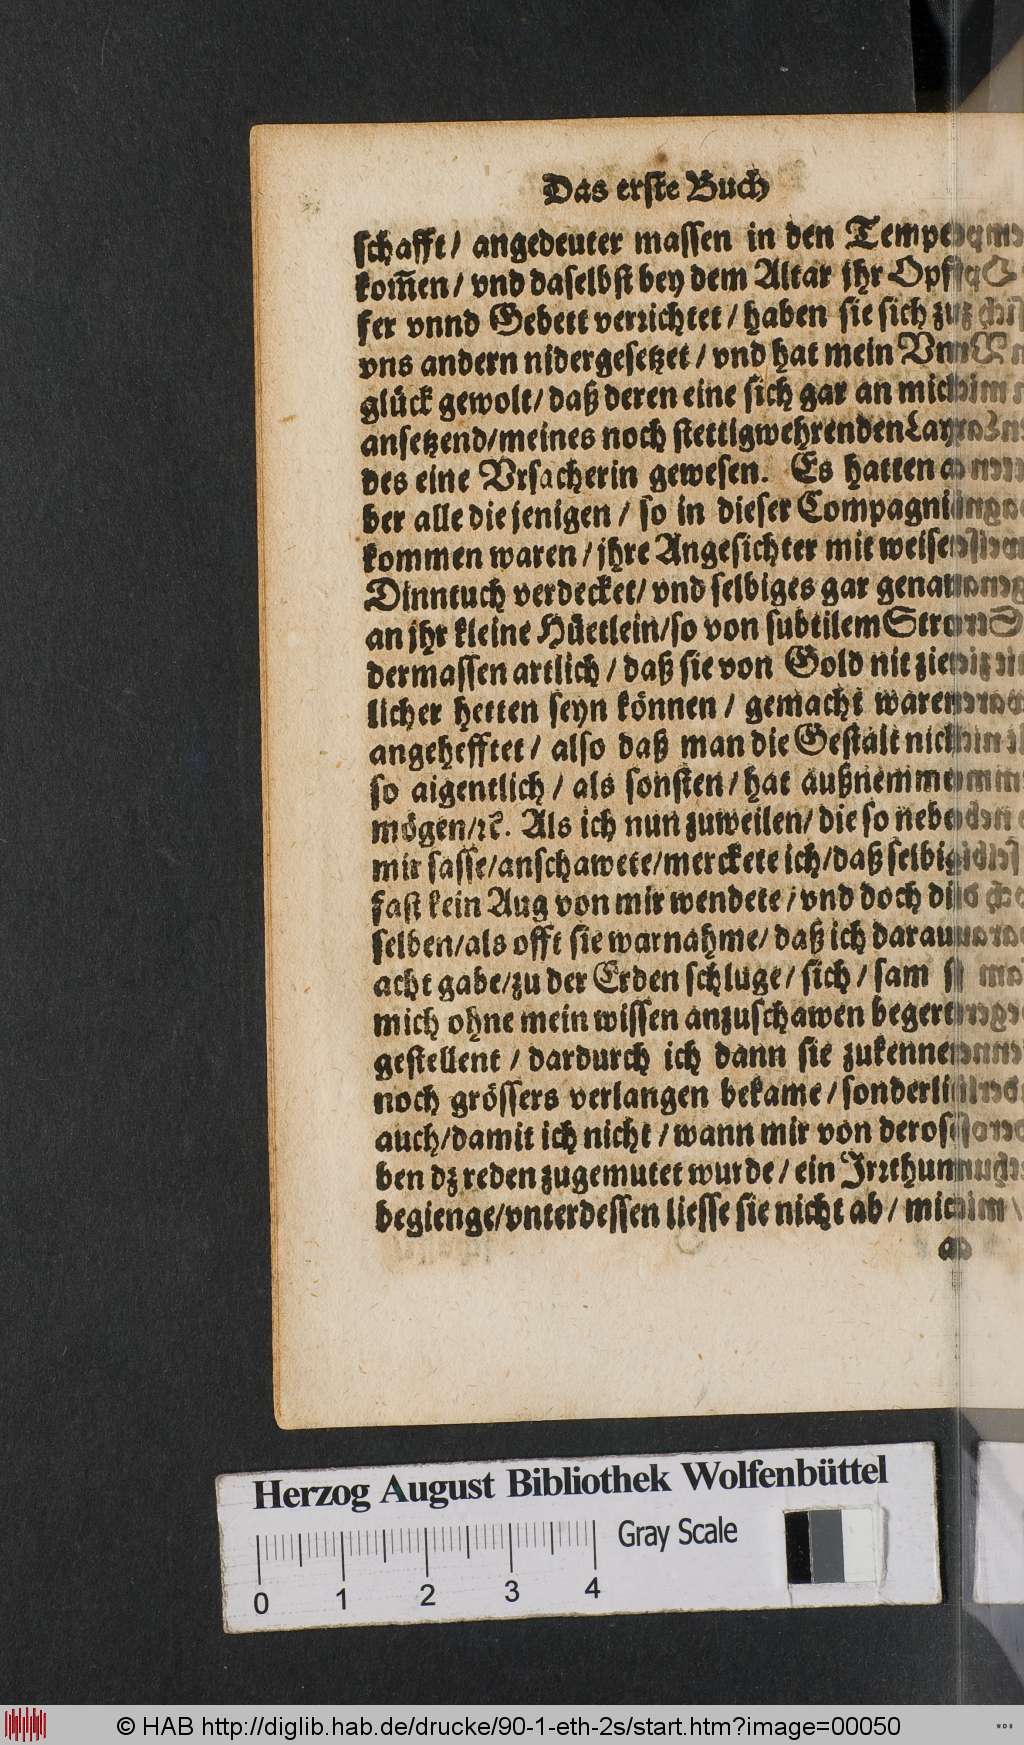 Das erste Buch
schafft/ angedeuter massen in den Tempel
kom̃en/ vnd daselbst bey dem Altar jhr Opf-
fer vnnd Gebett verrichtet/ haben sie sich zu
vns andern nidergesetzet/ vnd hat mein Vn-
glück gewolt/ daß deren eine sich gar an mich
ansetzend/ meines noch stettigwehrenden Lay-
des eine Vrsacherin gewesen. Es hatten a-
ber alle die jenigen/ so in dieser Compagni
kommen waren/ jhre Angesichter mit weisem
Dinntuch verdecket/ vnd selbiges gar genau
an jhr kleine Hüetlein/ so von subtilem Stro
dermassen artlich/ daß sie von Gold nit zier-
licher hetten seyn können/ gemacht waren
angehefftet/ also daß man die Gestalt nicht
so aigentlich/ als sonsten/ hat außnemmen
mögen/ ꝛc. Als ich nun zuweilen/ die so neben
mir sasse/ anschawete/ merckete ich/ daß selbige
fast kein Aug von mir wendete/ vnd doch die-
selben/ als offt sie warnahme/ daß ich darauff
acht gabe/ zu der Erden schluge/ sich/ sam si
mich ohne mein wissen anzuschawen begert
gestellent/ dardurch ich dann sie zukennen
noch grössers verlangen bekame/ sonderlich
auch/ damit ich nicht/ wann mir von derosel-
ben dz reden zugemutet wurde/ ein Jrrthum
begienge/ vnterdessen liesse sie nicht ab/ mich
Herzog August Bibliothek Wolfenbüttel
Gray Scale
0 1 2 3 4
© HAB http://diglib.hab.de/drucke/90-1-eth-2s/start.htm?image=00050